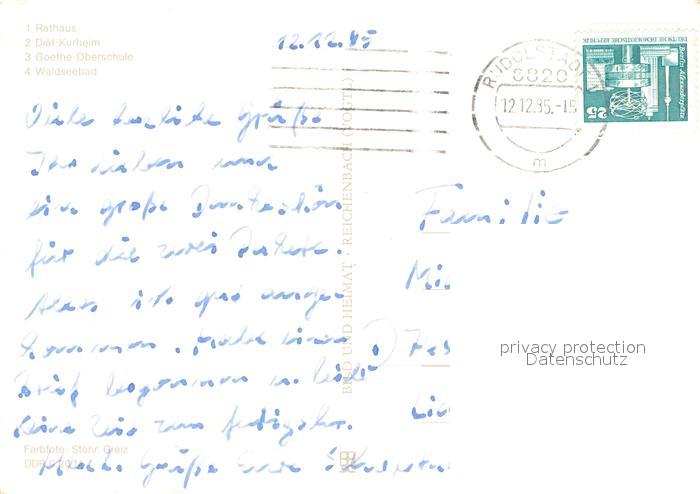 1 Rathaus
2 Diät-Kurheim
3 Goethe-Oberschule
4 Waldseebad
12.12.85
RUDOLSTADT
6820
12.12.85.-15
m
DEUTSCHE DEMOKRATISCHE REPUBLIK
Berlin, Alexanderplatz
25
Viele herzliche Grüße
Ihr Lieben und
ein große Dankeschön
für die zwei Pakete.
Alles ist gut ange-
kommen. Habe einen
Brief begonnen u. leider
keine Zeit zum fertigschr.
Herzl. Grüße Eure
Familie
BILD UND HEIMAT · REICHENBACH (VOGTL)
Farbfoto: Stöhr, Greiz
DDR
privacy protection
Datenschutz